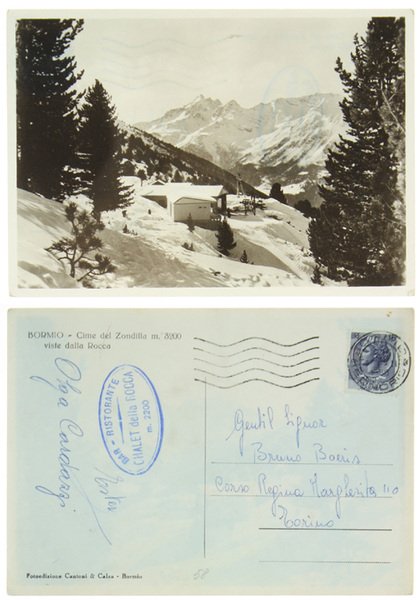 BORMIO - Cime del Zandilla m. 3200
viste dalla Rocca
Olga
Ester
BAR - RISTORANTE
CHALET della ROCCA
m. 2200
Gentil Signor
Bruno
Corso Regina Margherita 110
Torino
Fotoedizione Cantoni & Calza - Bormio
58